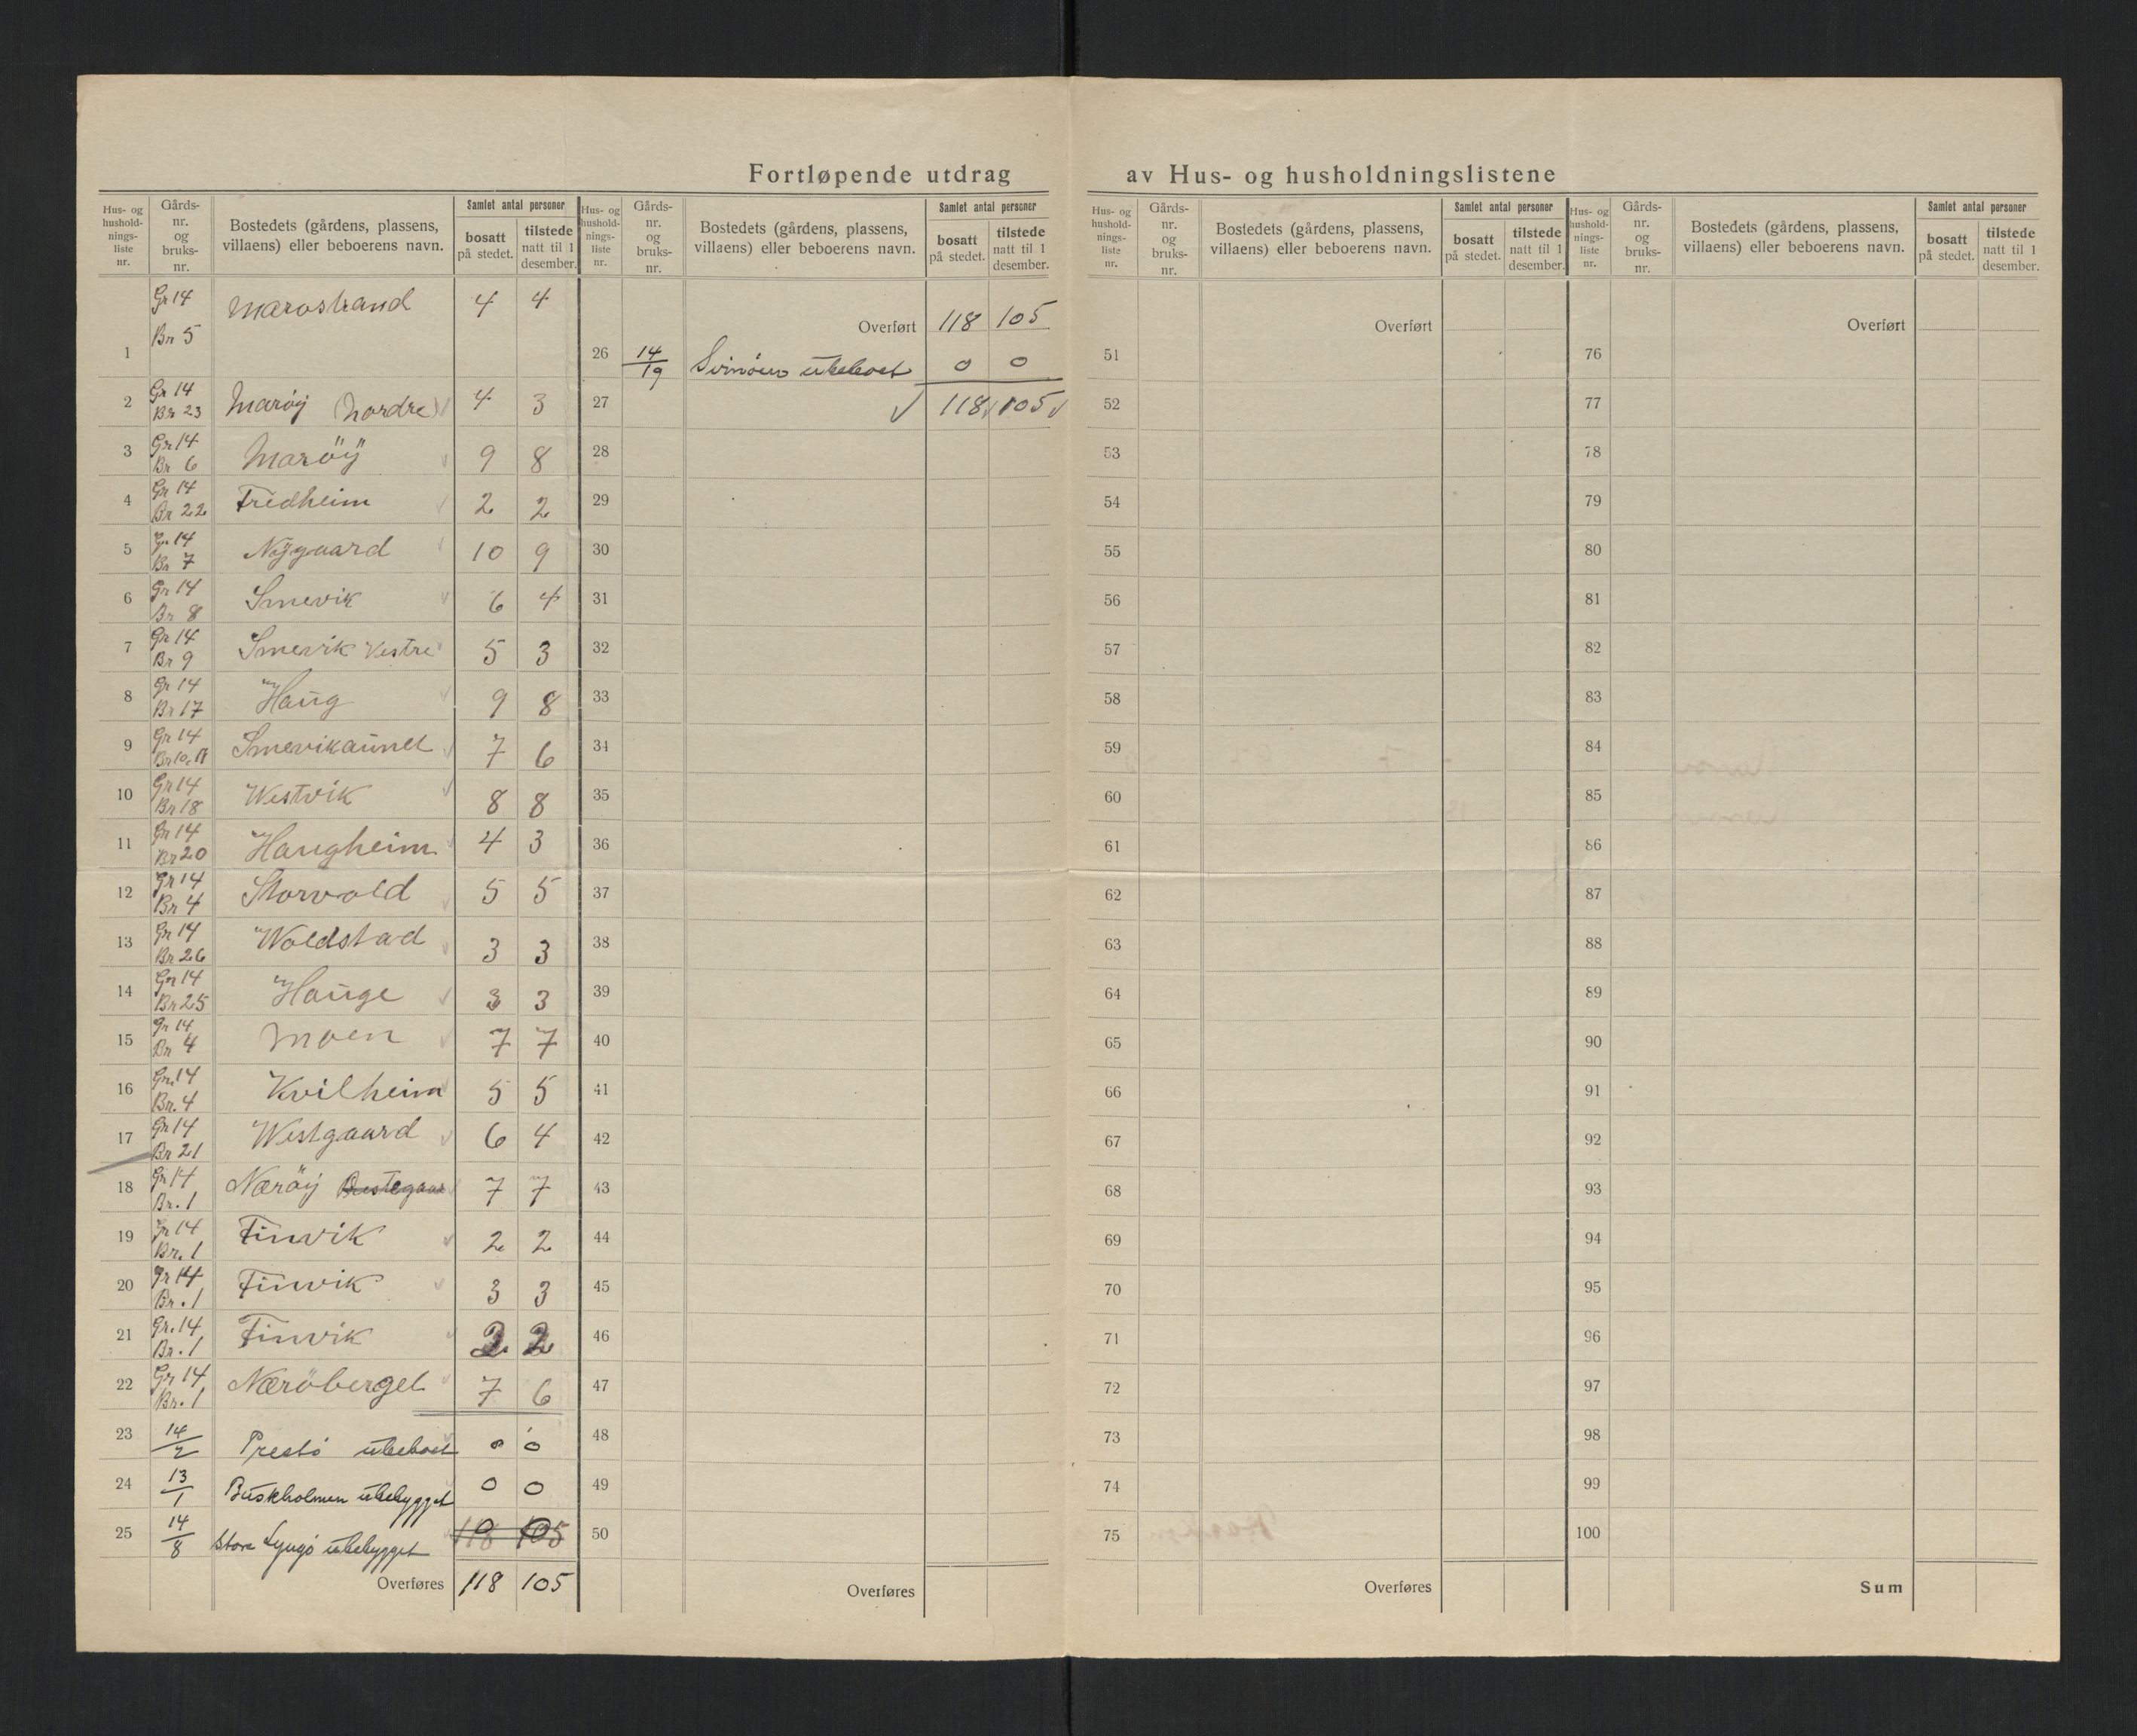 Fortløpende utdrag av Hus- og husholdningslistene
Hus- og hushold-nings-liste nr. Gårds-nr. og bruks-nr. Bostedets (gårdens, plassens, villaens) eller beboerens navn. Samlet antal personer bosatt på stedet. tilstede natt til 1 desember.
1 Gr 14 Br 5 Marøstrand 4 4
2 Gr 14 Br 23 Marøy (Nordre) 4 3
3 Gr 14 Br 6 Maröÿ 9 8
4 Gr 14 Br 22 Fredheim 2 2
5 Gr. 14 Br 7 Nÿgaard 10 9
6 Gr 14 Br 8 Smevik 6 4
7 Gr 14 Br 9 Smevik Vestre 5 3
8 Gr 14 Br 17 Haug 9 8
9 Gr 14 Br 10 Smevikaunet 7 6
10 Gr 14 Br 18 Westvik 8 8
11 Gr 14 Br 20 Haugheim 4 3
12 Gr 14 Br 4 Storvold 5 5
13 Gr 14 Br 26 Woldstad 3 3
14 Gr 14 Br 25 Hauge 3 3
15 Gr 14 Br 4 Moen 7 7
16 Gr. 14 Br. 4 Kvilheim 5 5
17 Gr 14 Br 21 Westgaard 6 4
18 Gr 14 Br. 1 Næröij 7 7
19 Gr 14 Br. 1 Finvik 2 2
20 Gr 14 Br. 1 Finvik 3 3
21 Gr. 14 Br. 1 Finvik 2 2
22 Gr 14 Br. 1 Næröberget 7 6
23 14/2 Prestö ubeboet 0 0
24 13/1 Buskholmen ubebygget 0 0
25 14/8 Store Lyngö ubebygget 118 105
Overføres 118 105
Hus- og hushold-nings-liste nr. Gårds-nr. og bruks-nr. Bostedets (gårdens, plassens, villaens) eller beboerens navn. Samlet antal personer bosatt på stedet. tilstede natt til 1 desember.
Overført 118 105
26 14/19 ubeboet 0 0
27 118 105
28
29
30
31
32
33
34
35
36
37
38
39
40
41
42
43
44
45
46
47
48
49
50
Overføres
Hus- og hushold-nings-liste nr. Gårds-nr. og bruks-nr. Bostedets (gårdens, plassens, villaens) eller beboerens navn. Samlet antal personer bosatt på stedet. tilstede natt til 1 desember.
Overført
51
52
53
54
55
56
57
58
59
60
61
62
63
64
65
66
67
68
69
70
71
72
73
74
75
Overføres
Hus- og hushold-nings-liste nr. Gårds-nr. og bruks-nr. Bostedets (gårdens, plassens, villaens) eller beboerens navn. Samlet antal personer bosatt på stedet. tilstede natt til 1 desember.
Overført
76
77
78
79
80
81
82
83
84
85
86
87
88
89
90
91
92
93
94
95
96
97
98
99
100
Sum